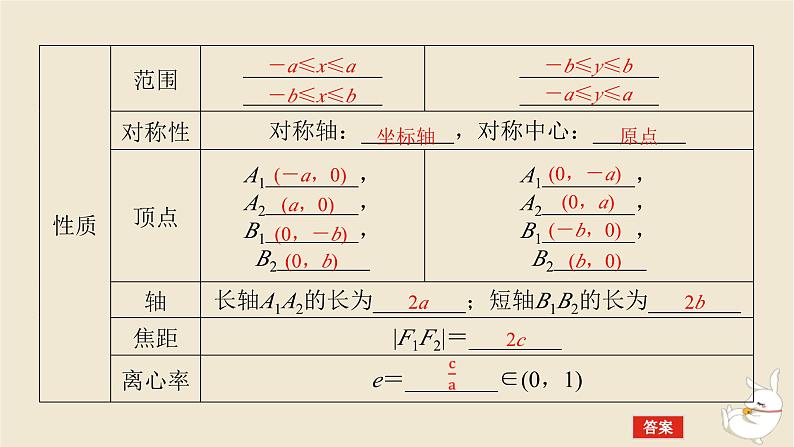 性质
范围
－a≤x≤a
－b≤x≤b
－b≤y≤b
－a≤y≤a
对称性
对称轴：坐标轴，对称中心：原点
顶点
A₁(－a，0)，
A₂(a，0)，
B₁(0，－b)，
B₂(0，b)
A₁(0，－a)，
A₂(0，a)，
B₁(－b，0)，
B₂(b，0)
轴
长轴A₁A₂的长为2a；短轴B₁B₂的长为2b
焦距
|F₁F₂|＝2c
离心率
e＝c/a∈(0，1)
答案